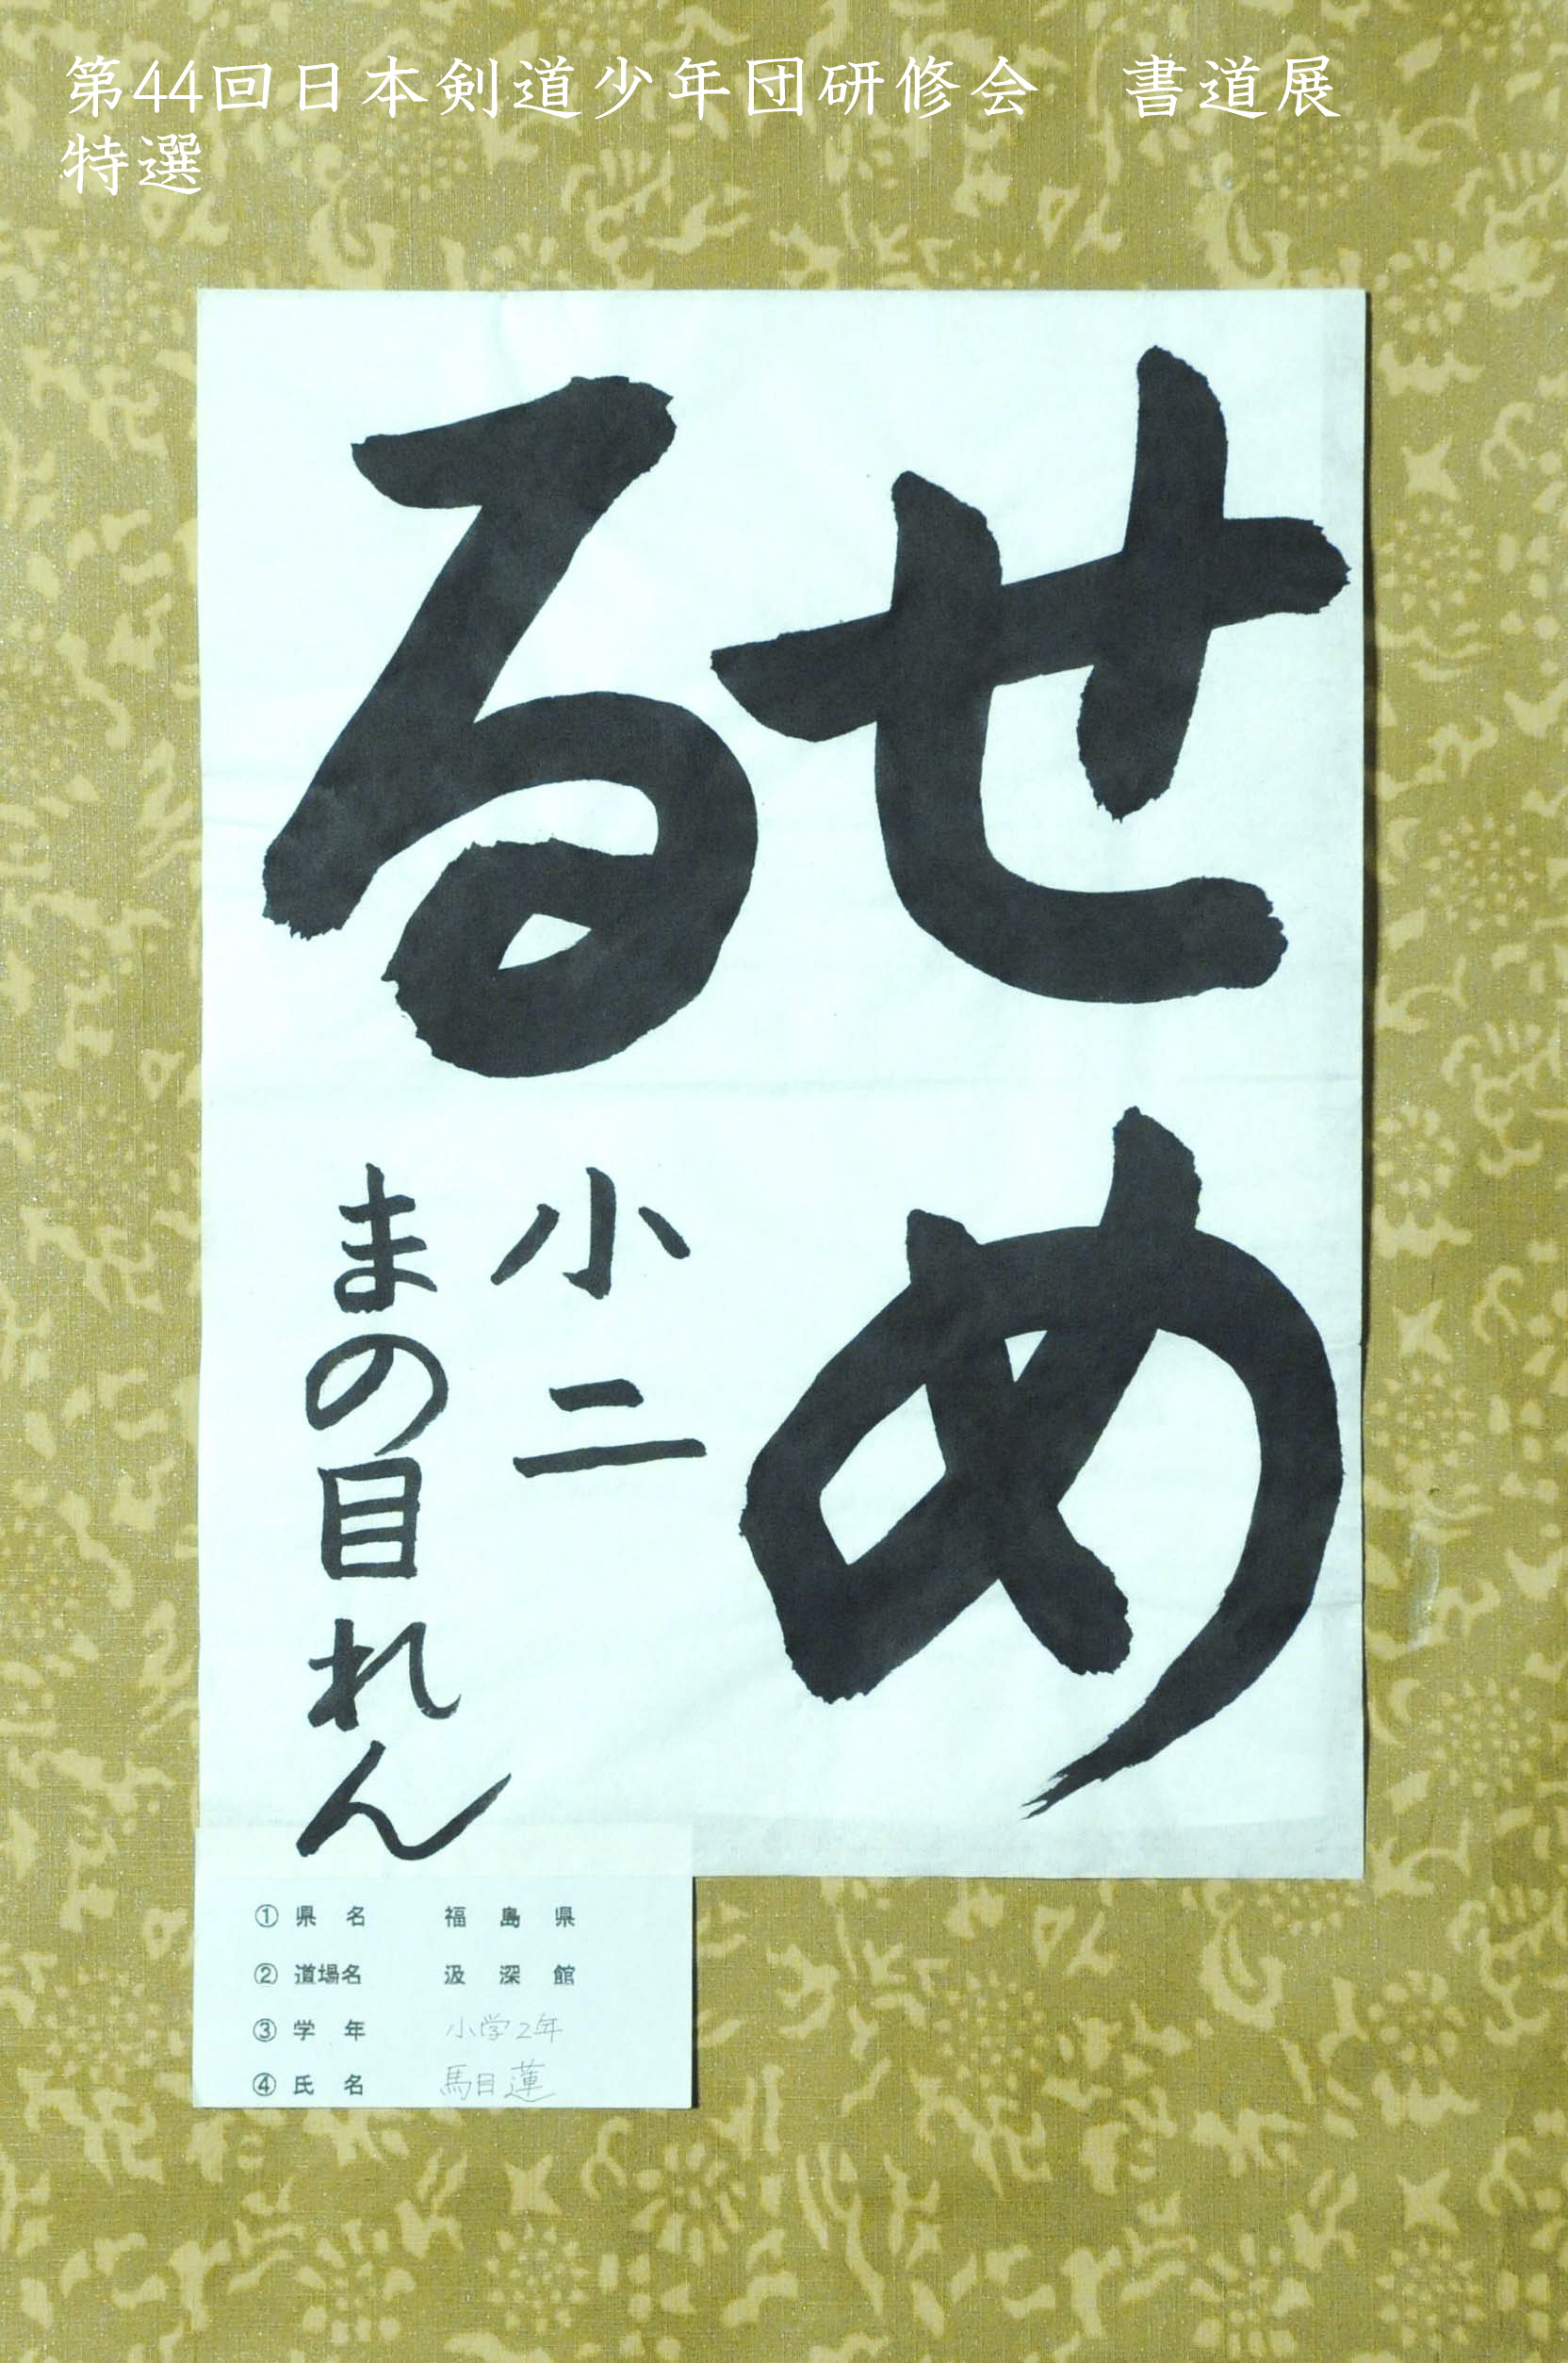 第44回日本剣道少年団研修会　書道展
特選
せめ
る
小二
まの目れん
① 県名 福島県
② 道場名 汲深館
③ 学年 小学2年
④ 氏名 馬目蓮